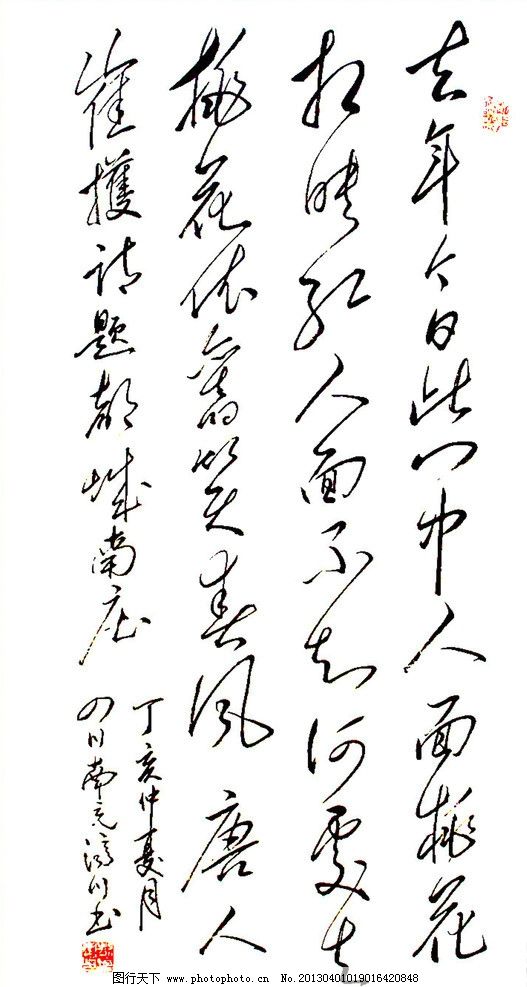 去年今日此门中人面桃花
相映红人面不知何處去
桃花依舊笑春风 唐人
崔擭诗题都城南庄
丁亥仲夏月
四川南充川书
图行天下 www.photophoto.cn No.20130401019016420848